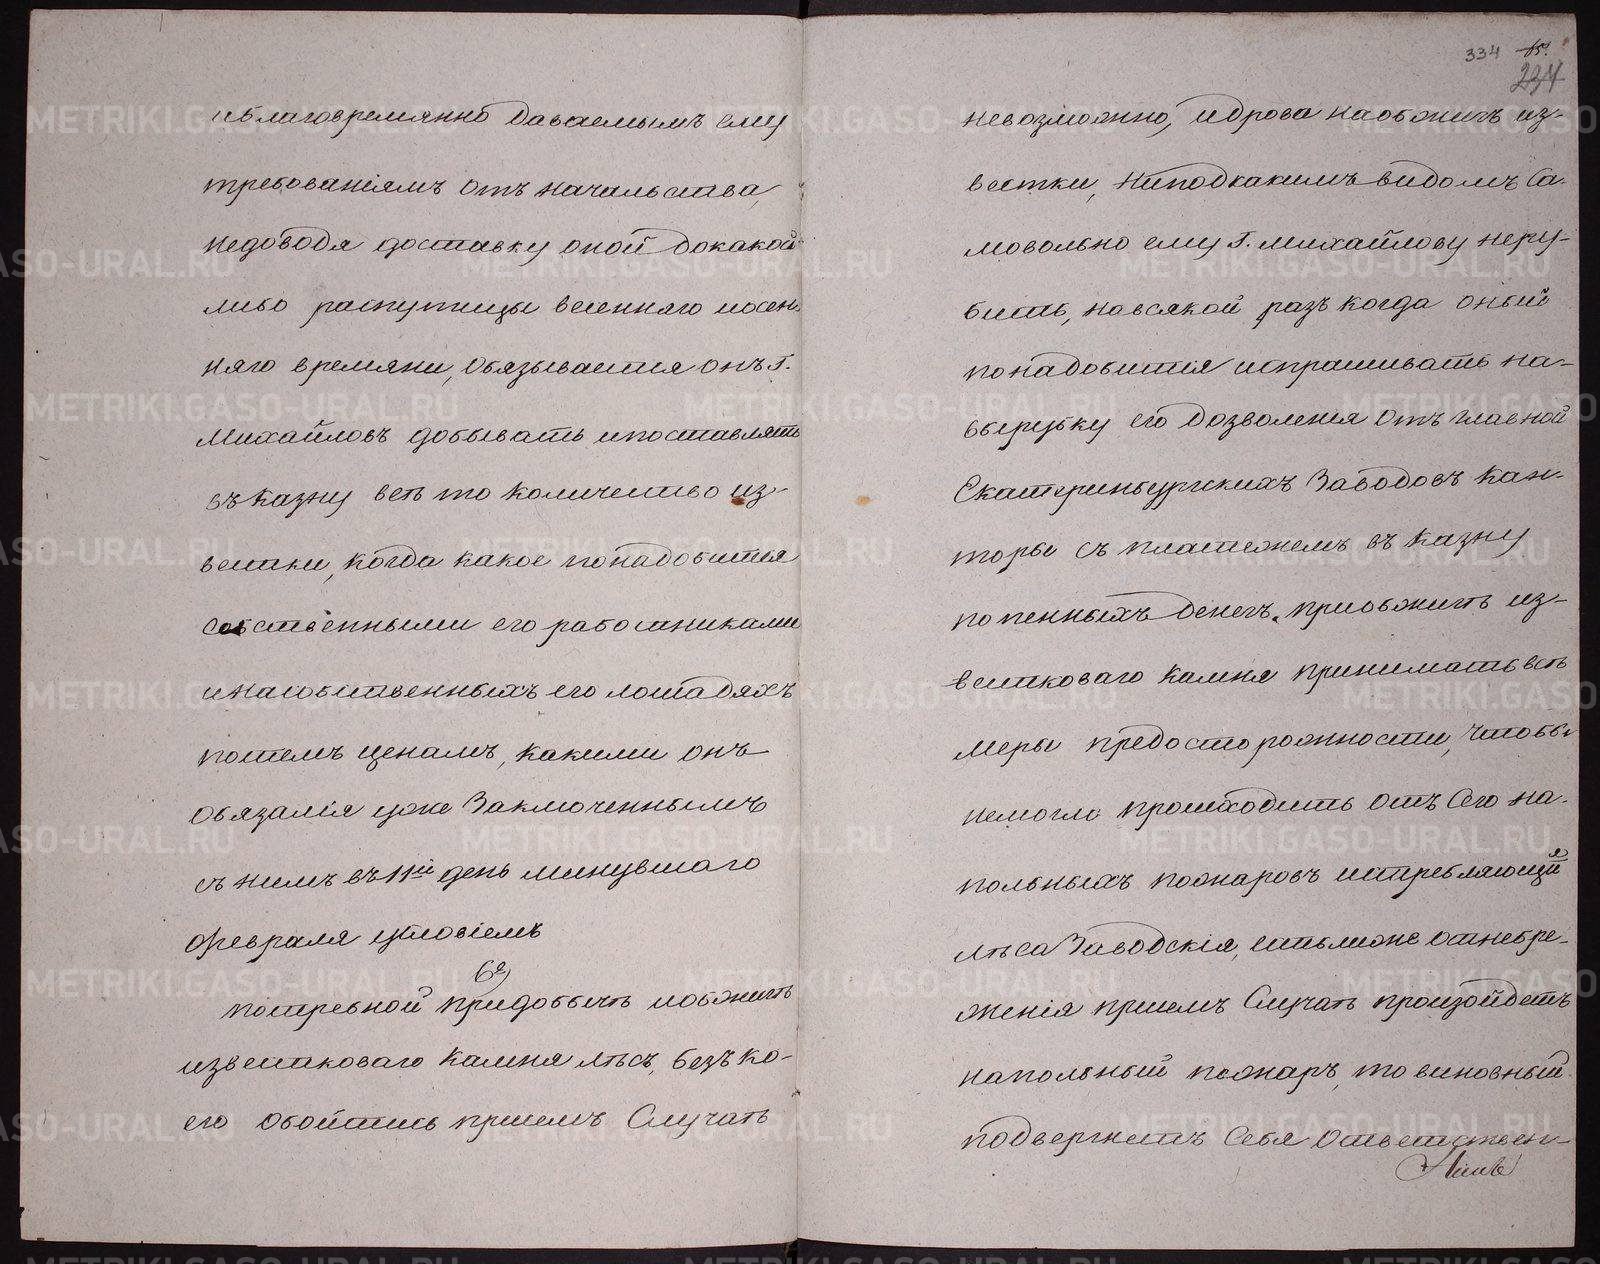 иблаговремянно даваемымъ ему
требованіямъ отъ начальства,
недоводя доставку оной докакой
либо распутицы весенняго иосен-
няго времяни, обязывается онъ Г.
Михайловъ добывать ипоставлять
въ казну всѣ то количество из-
вестки, когда какое понадобится
собственными его работниками
инасобственныхъ его лошадяхъ
потемъ ценамъ, какими онъ
обязался уже Заключеннымъ
съ нимъ въ 11й день минувшаго
февраля условіемъ
6е
потребной придобычѣ иобжигѣ
известковаго камня лѣсъ, безъ ко-
его обойтись присемъ Случаѣ
334 65.
234
невозможно, идрова наобжигъ из-
вестки, ниподкакимъ видомъ Са-
мовольно ему Г. Михайлову неру-
бить, навсякой разъ когда оный
понадобится испрашивать на-
вырубку его дозволенія отъ главной
Екатеринбургскихъ Заводовъ кан-
торы съ платежемъ въ казну
попенныхъ денегъ. приобжигѣ из-
вестковаго камня принимать всѣ
меры предосторожности, чтобы
немогло происходить отъ Сего на-
польныхъ пожаровъ истребляющія
лѣса Заводскія, естьлиже отнебре-
женія присемъ Случаѣ произойдетъ
напольный пожаръ, то виновный
подвергнетъ Себя ответствен-